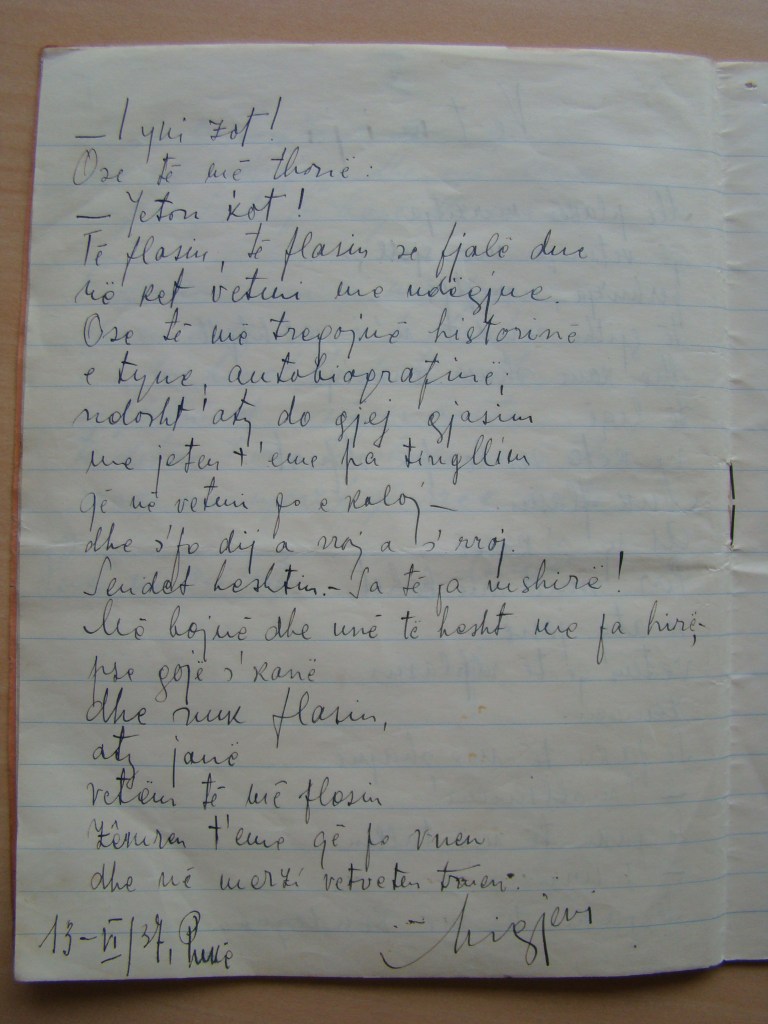 — I yni zot!
Ose të më thonë:
— Jeton kot!
Të flasin, të flasin se fjalë due
në ket vetmi me ndëgjue.
Ose të më tregojnë historinë
e tyne, autobiografinë;
ndosht' aty do gjej gjasim
me jeten t'eme pa tingllim
që në vetmi po e kaloj —
dhe s'po dij a rroj a s'rroj.
Sendet heshtin. — Sa të pa mshirë!
Më bojnë dhe unë të hesht me pa hirë;
pse gojë s'kanë
dhe nuk flasin,
aty janë
vetëm të më flasin
zêmren t'eme që po vuen
dhe në merzi vetveten truen.
13-VI/37, Pukë
Migjeni